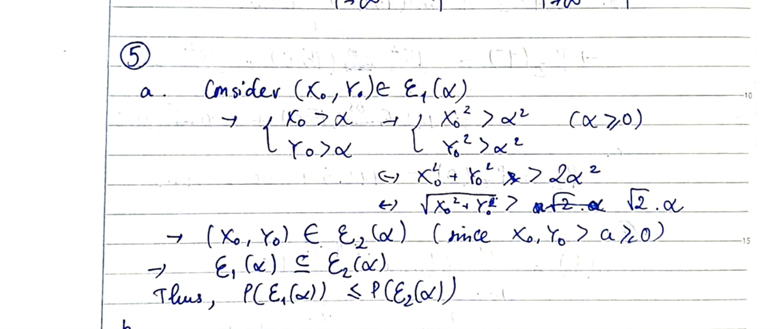 ⑤
a. Consider (X₀, Y₀) ∈ ℰ₁(α)
→ { X₀ > α → { X₀² > α² (α ≥ 0)
Y₀ > α Y₀² > α²
↔ X₀² + Y₀² > 2α²
↔ √(X₀² + Y₀²) > √2 . α
→ (X₀, Y₀) ∈ ℰ₂(α) (since X₀, Y₀ > a ≥ 0)
→ ℰ₁(α) ⊆ ℰ₂(α)
Thus, P(ℰ₁(α)) ≤ P(ℰ₂(α))
10
15